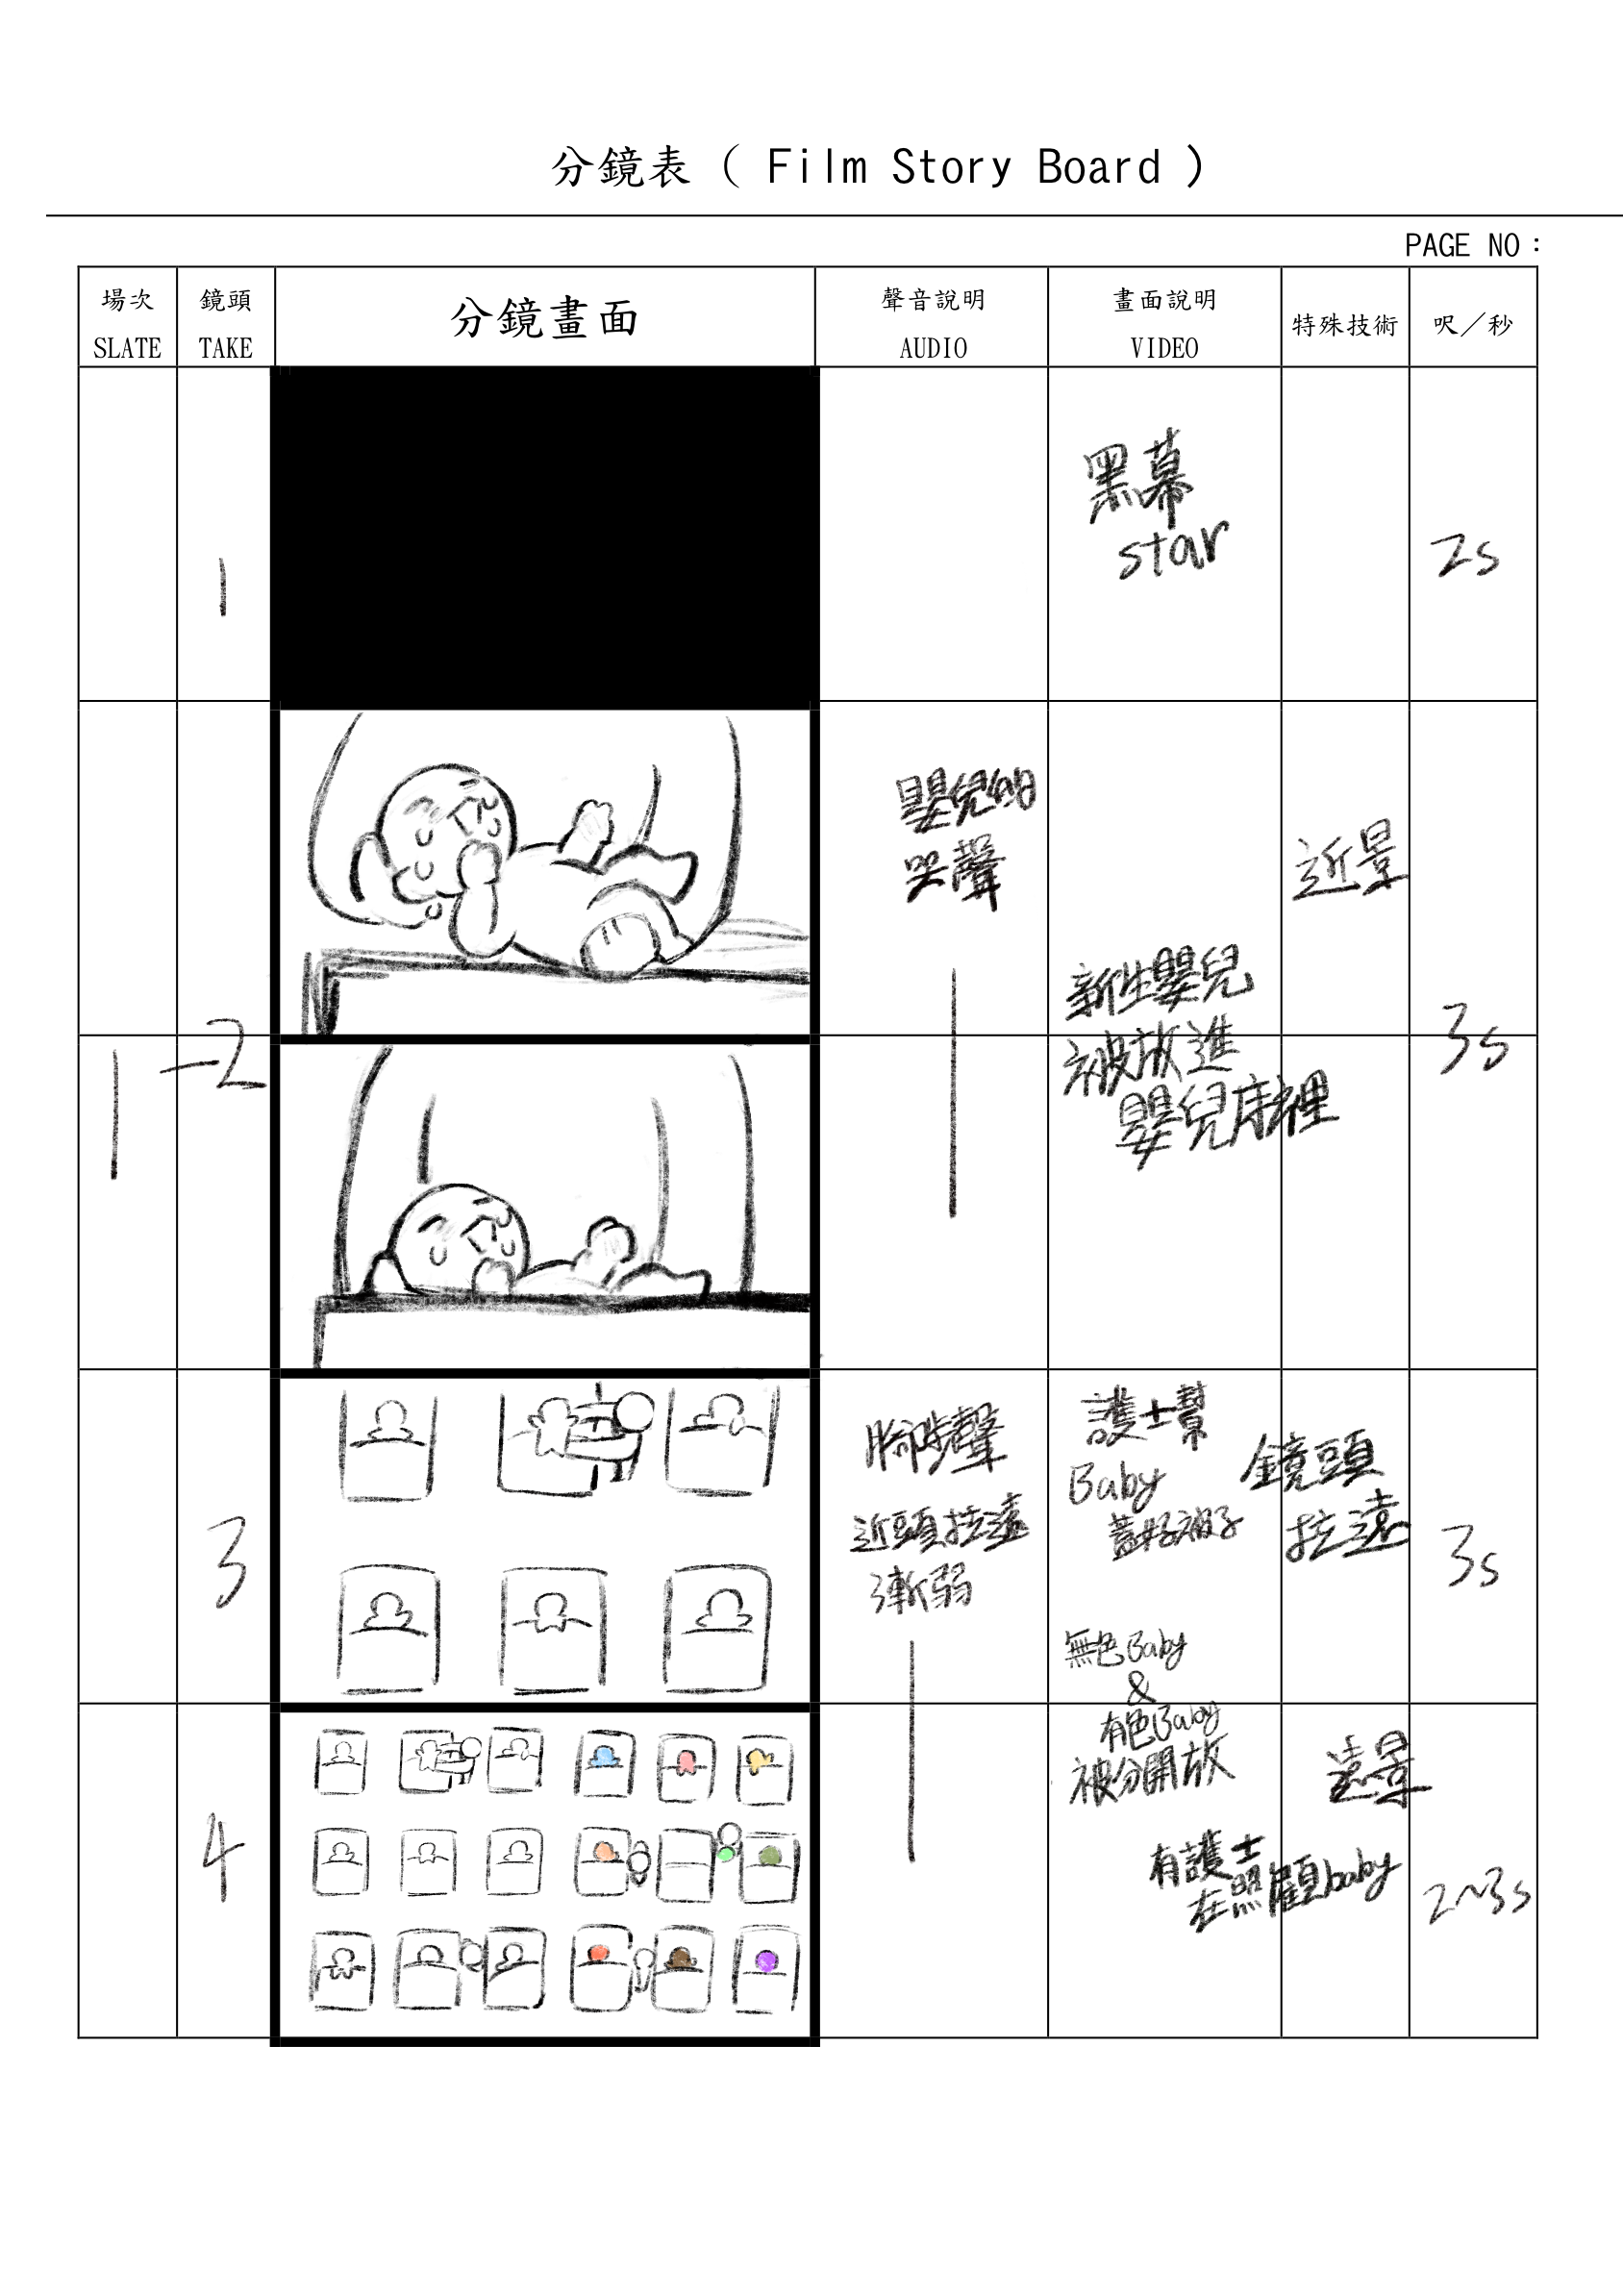 分鏡表 ( Film Story Board )
PAGE NO：
場次
SLATE
鏡頭
TAKE
分鏡畫面
聲音說明
AUDIO
畫面說明
VIDEO
特殊技術
呎／秒
1
黑幕
star
2s
1-2
嬰兒的
哭聲
新生嬰兒
被放進
嬰兒床裡
近景
3s
3
腳步聲
近頭拉遠
漸弱
護士幫
Baby
蓋好被子
鏡頭
拉遠
3s
4
無色Baby
&
有色Baby
被分開放
有護士
在照顧baby
遠景
2~3s